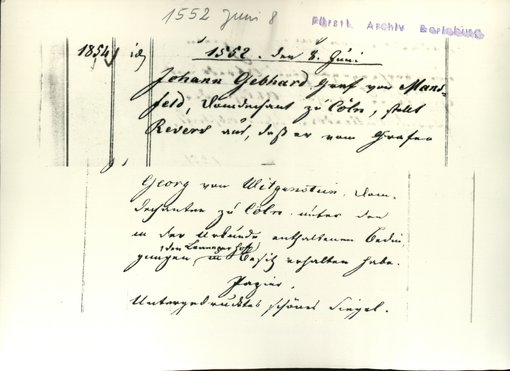 1552 Juni 8
Fürstl. Archiv Berleburg
1854 id 1552. den 8. Juni
Johann Gebhard, Graf von Mans-
feld, Domdechant zu Cöln, stellt
Revers aus, daß er vom Grafen
Georg von Witgenstein, Dom-
dechanten zu Cöln unter den
in der Urkunde enthaltenen Bedin-
(den Hoff)
gungen in Besitz erhalten habe.
Papier.
Untergedrucktes schönes Siegel.